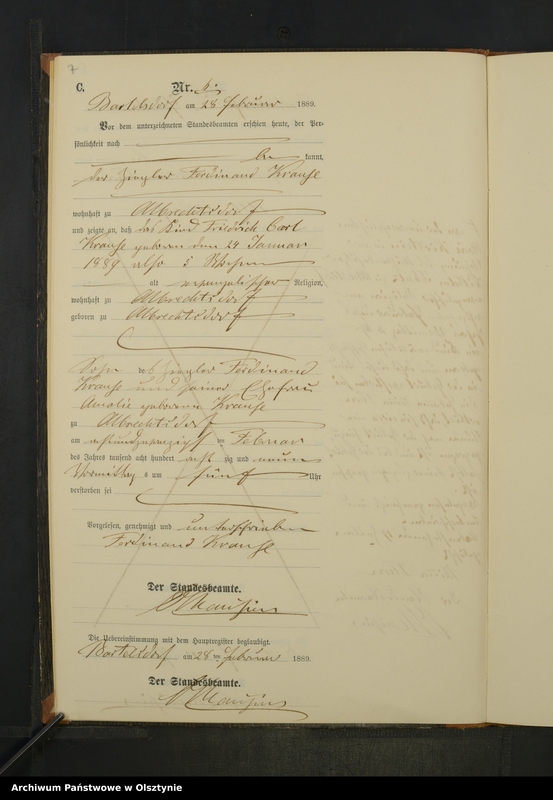 7
C.
Nr. 6.
Bartelsdorf am 28 Februar 1889.
Vor dem unterzeichneten Standesbeamten erschien heute, der Per-
sönlichkeit nach
be kannt,
der Ziegler Ferdinand Krause
wohnhaft zu Albrechtsdorf
und zeigte an, daß das Kind Friedrich Carl
Krause geboren den 24 Januar
1889 also 5 Wochen
alt evangelischer Religion,
wohnhaft zu Albrechtsdorf
geboren zu Albrechtsdorf
Sohn des Ziegler Ferdinand
Krause und seiner Ehefrau
Amalie geborene Krause
zu Albrechtsdorf
am achtundzwanzigsten Februar
des Jahres tausend acht hundert acht zig und neun
Vormittags um fünf Uhr
verstorben sei
Vorgelesen, genehmigt und unterschrieben
Ferdinand Krause
Der Standesbeamte.
Die Uebereinstimmung mit dem Hauptregister beglaubigt.
Bartelsdorf am 28 ten Februar 1889.
Der Standesbeamte.
Archiwum Państwowe w Olsztynie